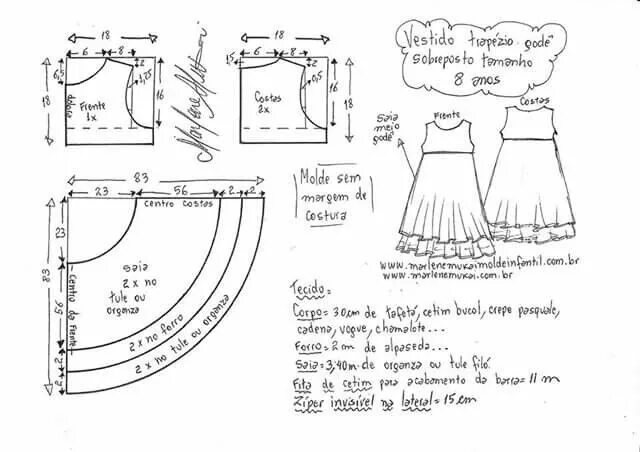 18
6
8
2
6,5
1,25
18
16
dobra
Frente
1x
Marlene Mukai
18
6
8
1,5
2
0,5
Costas
2x
16
18
Vestido trapézio godê
sobreposto tamanho
8 anos
Frente
Costas
Saia
meio
godê
Molde sem
margem de
costura
www.marlenemukaimoldeinfantil.com.br
www.marlenemukai.com.br
83
23
56
2
2
centro costas
23
83
56
2
2
Centro da Frente
Saia
2x no
tule ou
organza
2x no forro
2x no tule ou organza
Tecido=
Corpo= 30cm de tafetá, cetim bucol, crepe pasquale,
cadena, vogue, chamalote...
Forro= 2m de alpaseda...
Saia= 3,40m de organza ou tule filó.
Fita de cetim para acabamento da barra= 11m
Zíper invisível na lateral= 15cm